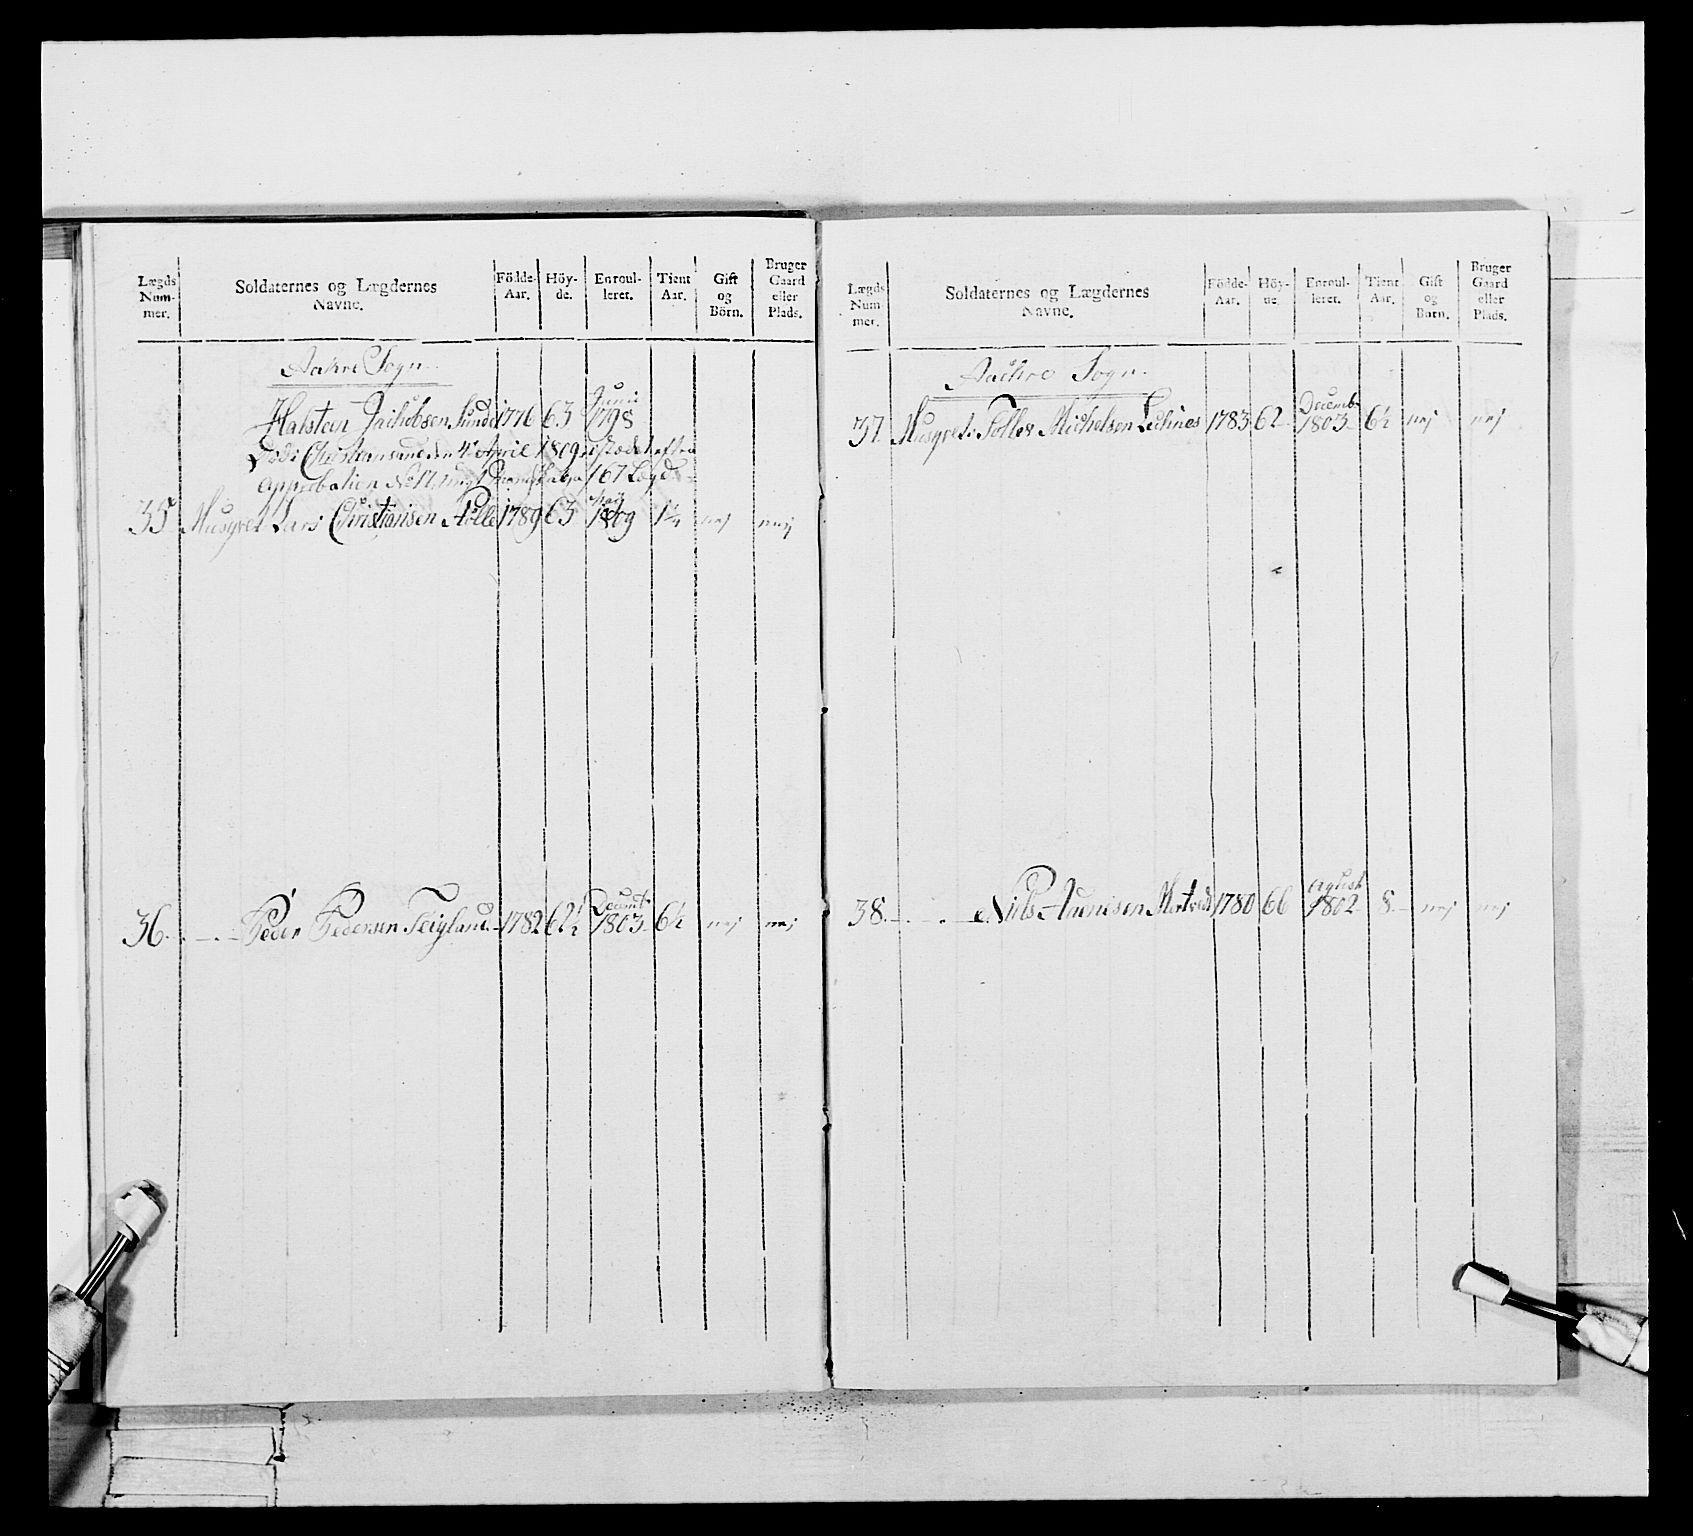 Lægds Num- mer.
Soldaternes og Lægdernes Navne.
Födde- Aar.
Höy- de.
Enroul- leret.
Tient Aar.
Gift og Börn.
Bruger Gaard eller Plads.
Aakre Sogn.
Halsten Jachobsen Sunde 1776 63 Junii 1798
Död i Christiansand den 4 April 1809
Approbation No 17 167 Lægd
35 Musqvet Lars Christiansen 1789 63 1809 1½ nej nej
36. Peder Pedersen Teigland 1782 62½ Decemb. 1803 6½ nej nej
Lægds Num mer.
Soldaternes og Lægdernes Navne.
Födde- Aar.
Höy- de.
Enroul- leret.
Tient Aar.
Gift og Börn.
Bruger Gaard eller Plads.
Aachre Sogn.
37 Musqvet. Michelsen 1783 62 Decemb. 1803 6½ nej nej
38. Niels 1780 66 1802 8 nej nej